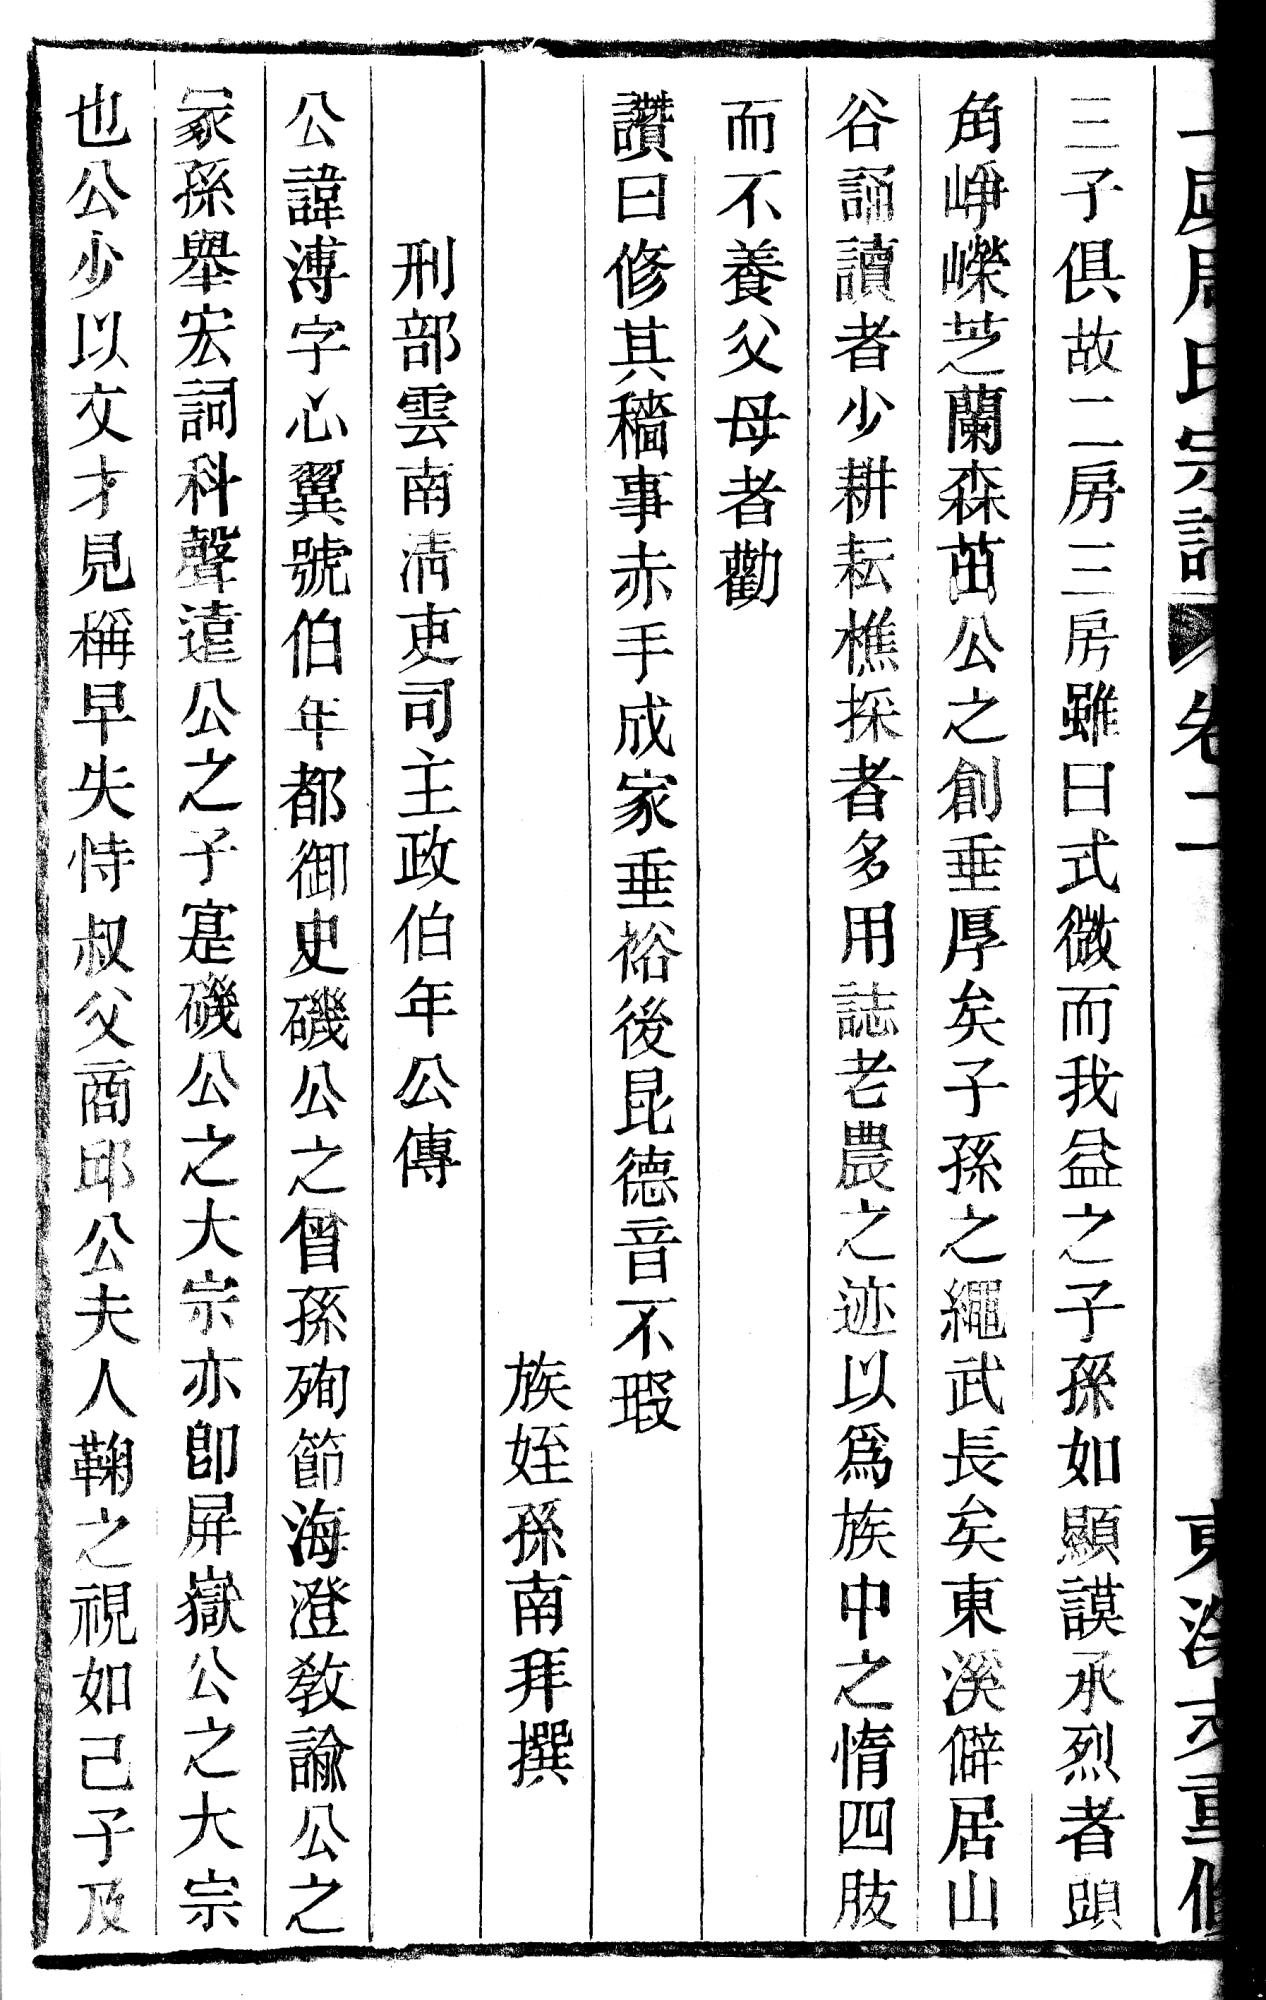 氏宗譜 卷二 東溪支重修
三子俱故二房三房雖曰式微而我益之子孫如顯謨承烈者頭
角崢嶸芝蘭森茁公之創垂厚矣子孫之繩武長矣東溪僻居山
谷誦讀者少耕耘樵採者多用誌老農之迹以爲族中之惰四肢
而不養父母者勸
讚曰修其穡事赤手成家垂裕後昆德音不瑕
族姪孫南拜撰
刑部雲南清吏司主政伯年公傳
公諱溥字心翼號伯年都御史磯公之曾孫殉節海澄教諭公之
冢孫舉宏詞科聲遠公之子寔磯公之大宗亦卽屏嶽公之大宗
也公少以文才見稱早失恃叔父商邱公夫人鞠之視如己子及